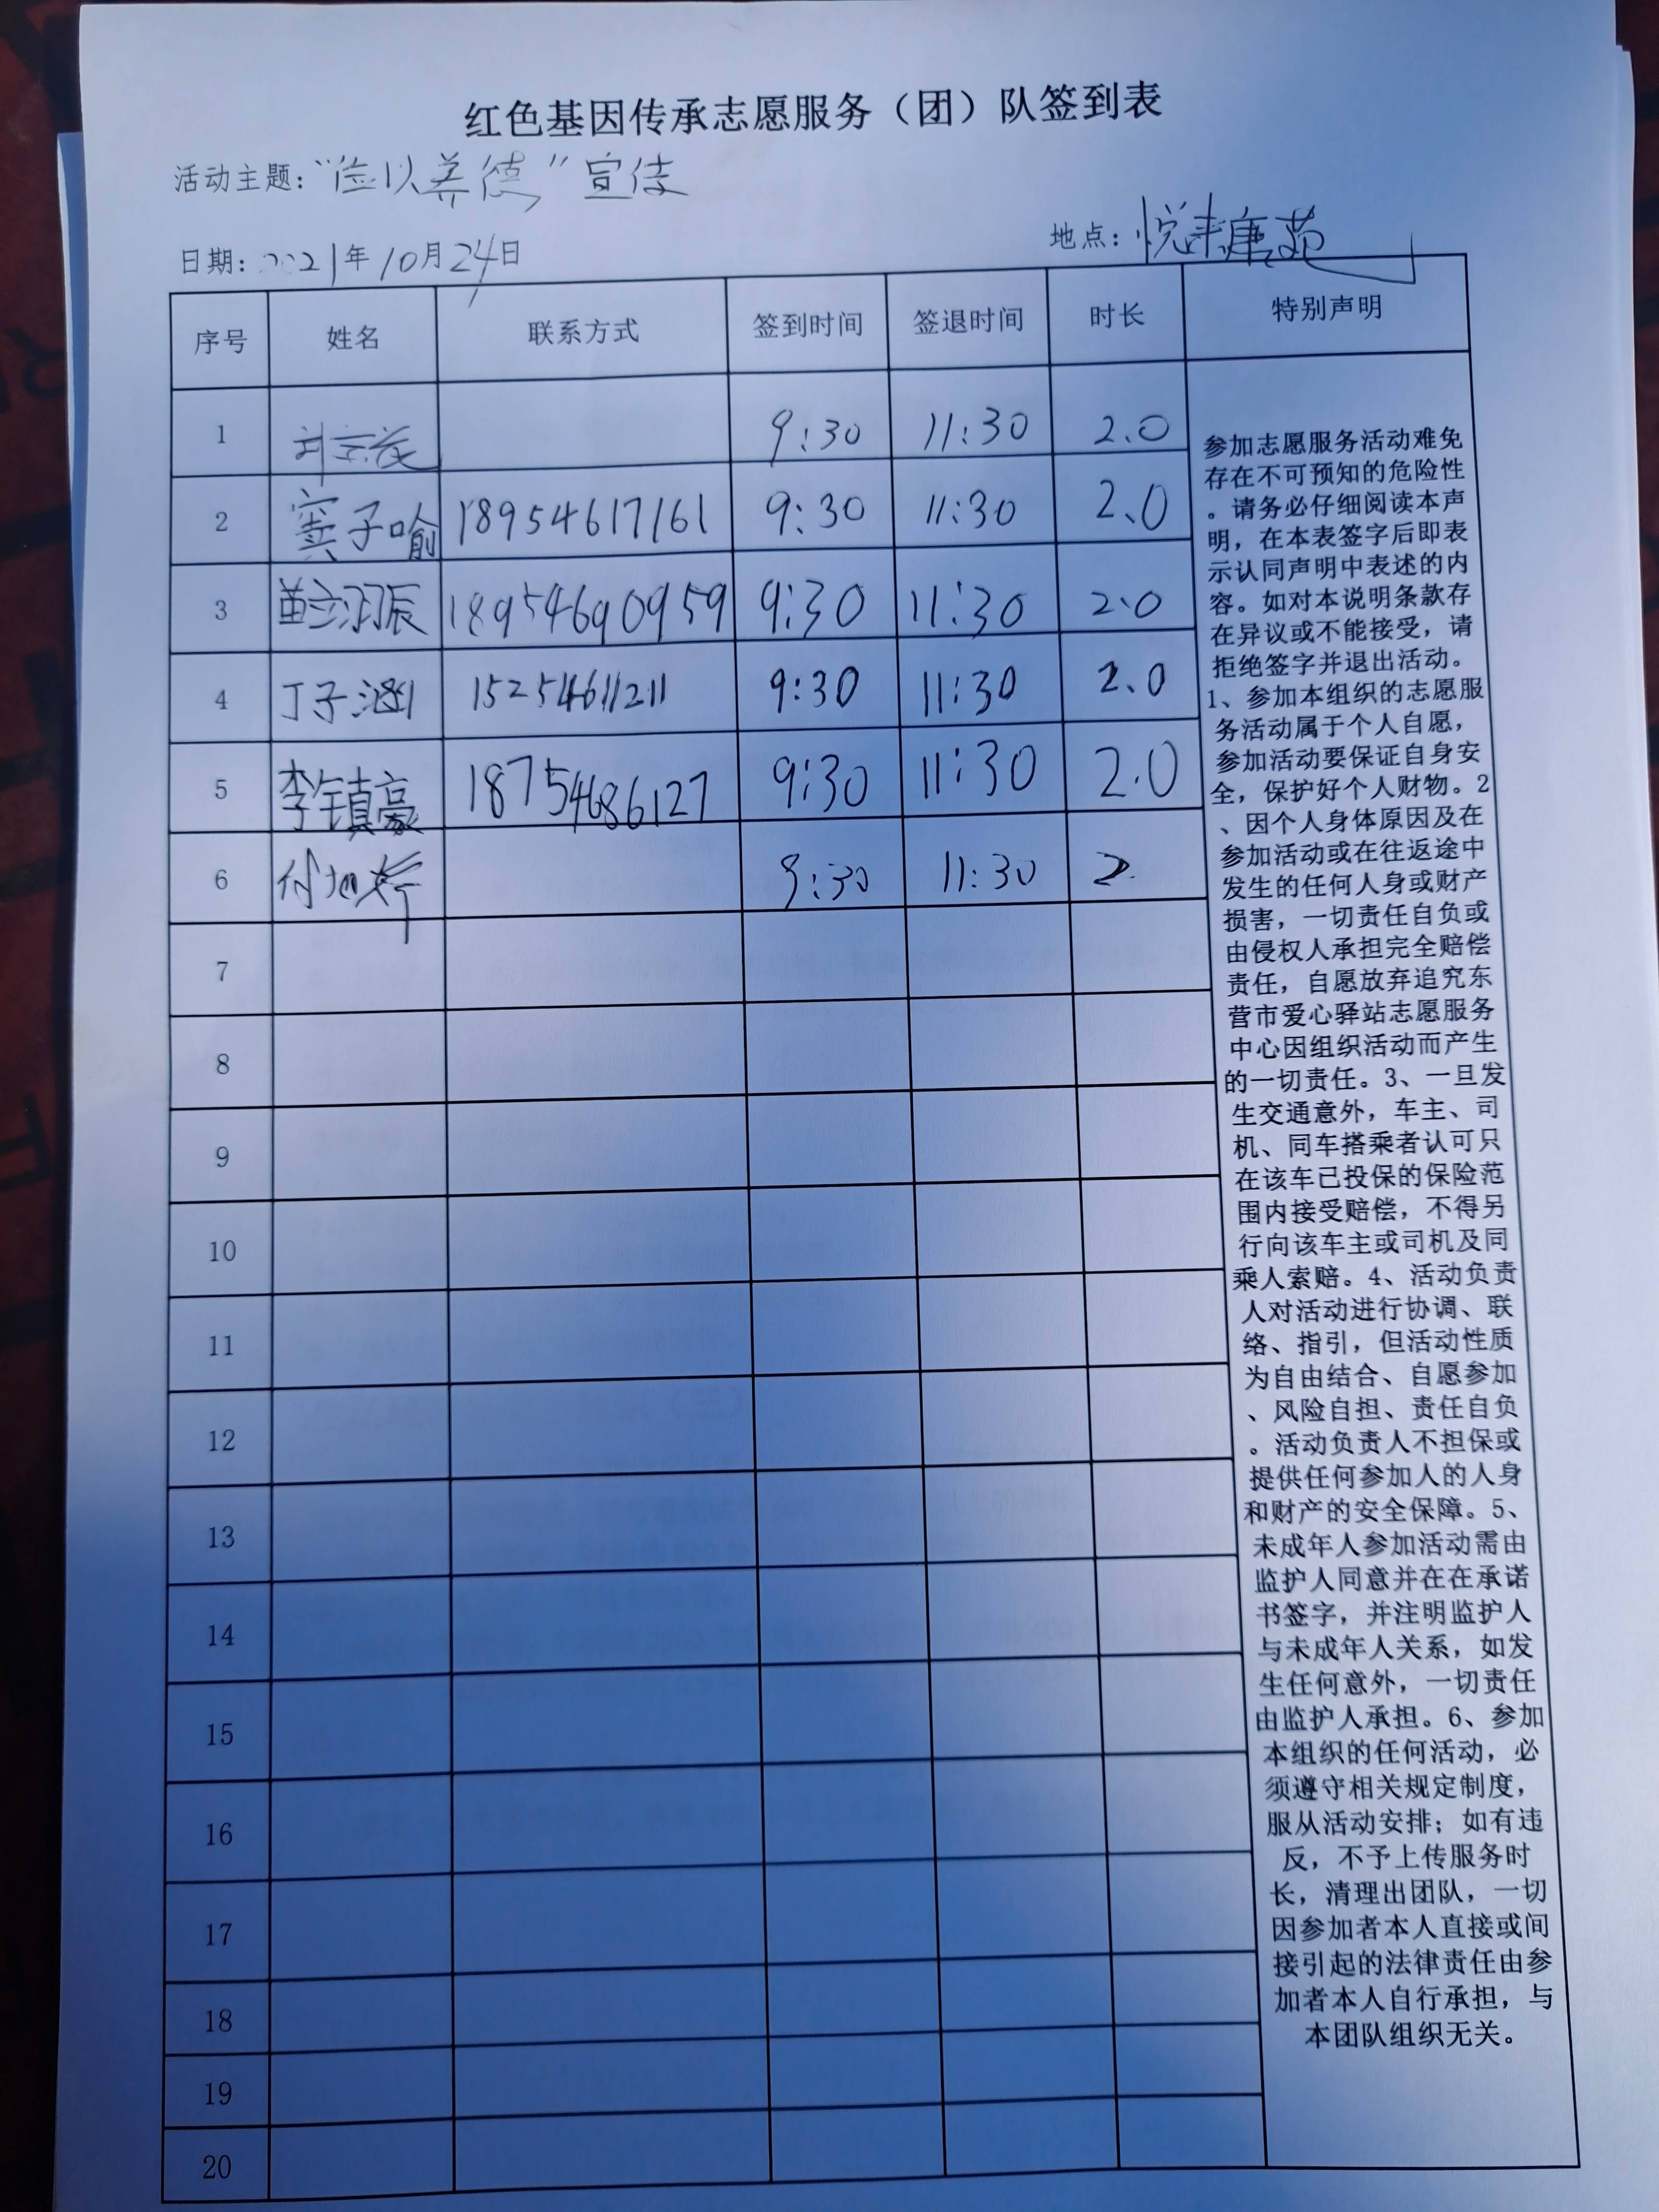 红色基因传承志愿服务（团）队签到表
活动主题：“俭以养德”宣传
日期：2021年10月24日
地点：悦来康苑
序号 姓名 联系方式 签到时间 签退时间 时长 特别声明
1 9:30 11:30 2.0
2 窦子喻 18954617161 9:30 11:30 2.0
3 苗 辰 18954690959 9:30 11:30 2.0
4 丁子涵 15254611211 9:30 11:30 2.0
5 李镇豪 18754686127 9:30 11:30 2.0
6 9:30 11:30 2
7
8
9
10
11
12
13
14
15
16
17
18
19
20
参加志愿服务活动难免
存在不可预知的危险性
。请务必仔细阅读本声
明，在本表签字后即表
示认同声明中表述的内
容。如对本说明条款存
在异议或不能接受，请
拒绝签字并退出活动。
1、参加本组织的志愿服
务活动属于个人自愿，
参加活动要保证自身安
全，保护好个人财物。2
、因个人身体原因及在
参加活动或在往返途中
发生的任何人身或财产
损害，一切责任自负或
由侵权人承担完全赔偿
责任，自愿放弃追究东
营市爱心驿站志愿服务
中心因组织活动而产生
的一切责任。3、一旦发
生交通意外，车主、司
机、同车搭乘者认可只
在该车已投保的保险范
围内接受赔偿，不得另
行向该车主或司机及同
乘人索赔。4、活动负责
人对活动进行协调、联
络、指引，但活动性质
为自由结合、自愿参加
、风险自担、责任自负
。活动负责人不担保或
提供任何参加人的人身
和财产的安全保障。5、
未成年人参加活动需由
监护人同意并在在承诺
书签字，并注明监护人
与未成年人关系，如发
生任何意外，一切责任
由监护人承担。6、参加
本组织的任何活动，必
须遵守相关规定制度，
服从活动安排；如有违
反，不予上传服务时
长，清理出团队，一切
因参加者本人直接或间
接引起的法律责任由参
加者本人自行承担，与
本团队组织无关。